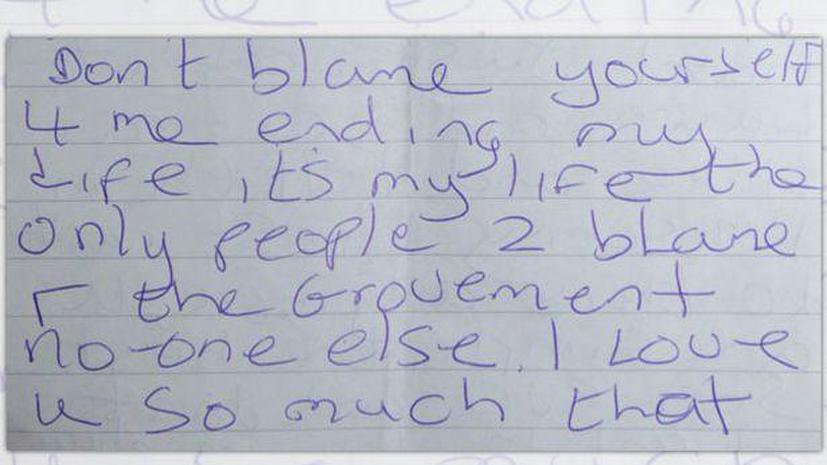 Don't blame yourself
4 me ending my
Life, it's my life the
only people 2 blame
r the Grovement
no-one else. I Love
u so much that